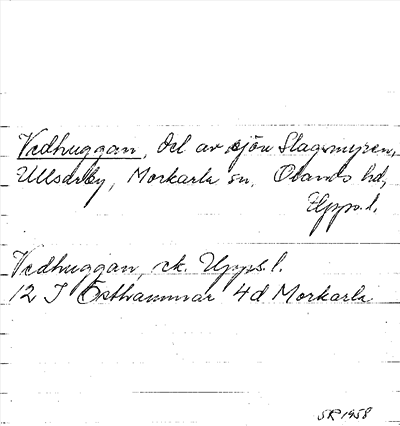 Vedhuggan, del av sjön Slagsmyren,
Ullsärby, Morkarla sn, Olands hd,
Upps. l.
Vedhuggan, ek. Upps. l.
12 I Östhammar 4d Morkarla
SR 1958